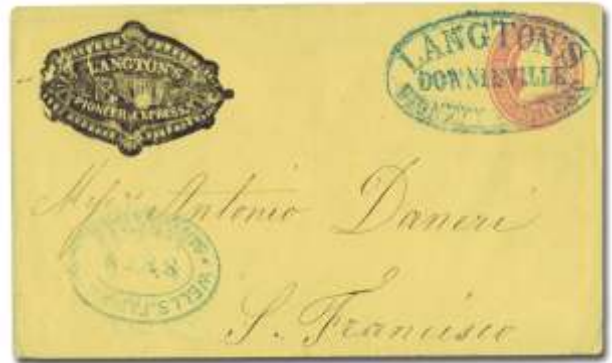 LANGTON'S
PIONEER EXPRESS
LANGTON'S
DOWNIEVILLE
Antonio Daneri
WELLS, FARGO
S. Francisco